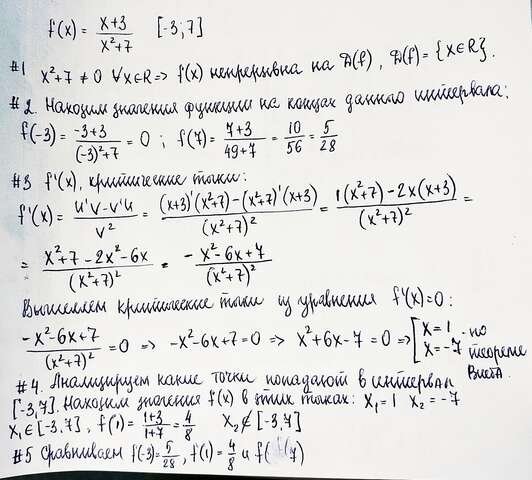 f(x) = \frac{x+3}{x²+7} [-3;7]
#1 x²+7 ≠ 0 ∀x∈R => f(x) непрерывна на D(f), D(f) = {x∈R}.
#2. Находим значения функции на концах данного интервала:
f(-3) = \frac{-3+3}{(-3)²+7} = 0 ; f(7) = \frac{7+3}{49+7} = \frac{10}{56} = \frac{5}{28}
#3 f'(x), критические точки:
f'(x) = \frac{u'v - v'u}{v²} = \frac{(x+3)'(x²+7) - (x²+7)'(x+3)}{(x²+7)²} = \frac{1(x²+7) - 2x(x+3)}{(x²+7)²} =
= \frac{x²+7-2x²-6x}{(x²+7)²} = \frac{-x²-6x+7}{(x²+7)²}
Вычисляем критические точки из уравнения f'(x)=0:
\frac{-x²-6x+7}{(x²+7)²} = 0 => -x²-6x+7=0 => x²+6x-7=0 => [x=1 x=-7 - по теореме Виета.
#4. Анализируем какие точки попадают в интервал
[-3,7]. Находим значения f(x) в этих точках: x₁=1 x₂=-7
x₁∈[-3,7], f(1) = \frac{1+3}{1+7} = \frac{4}{8} x₂∉[-3,7]
#5 Сравниваем f(-3)=\frac{5}{28}, f(1)=\frac{4}{8} и f(7)